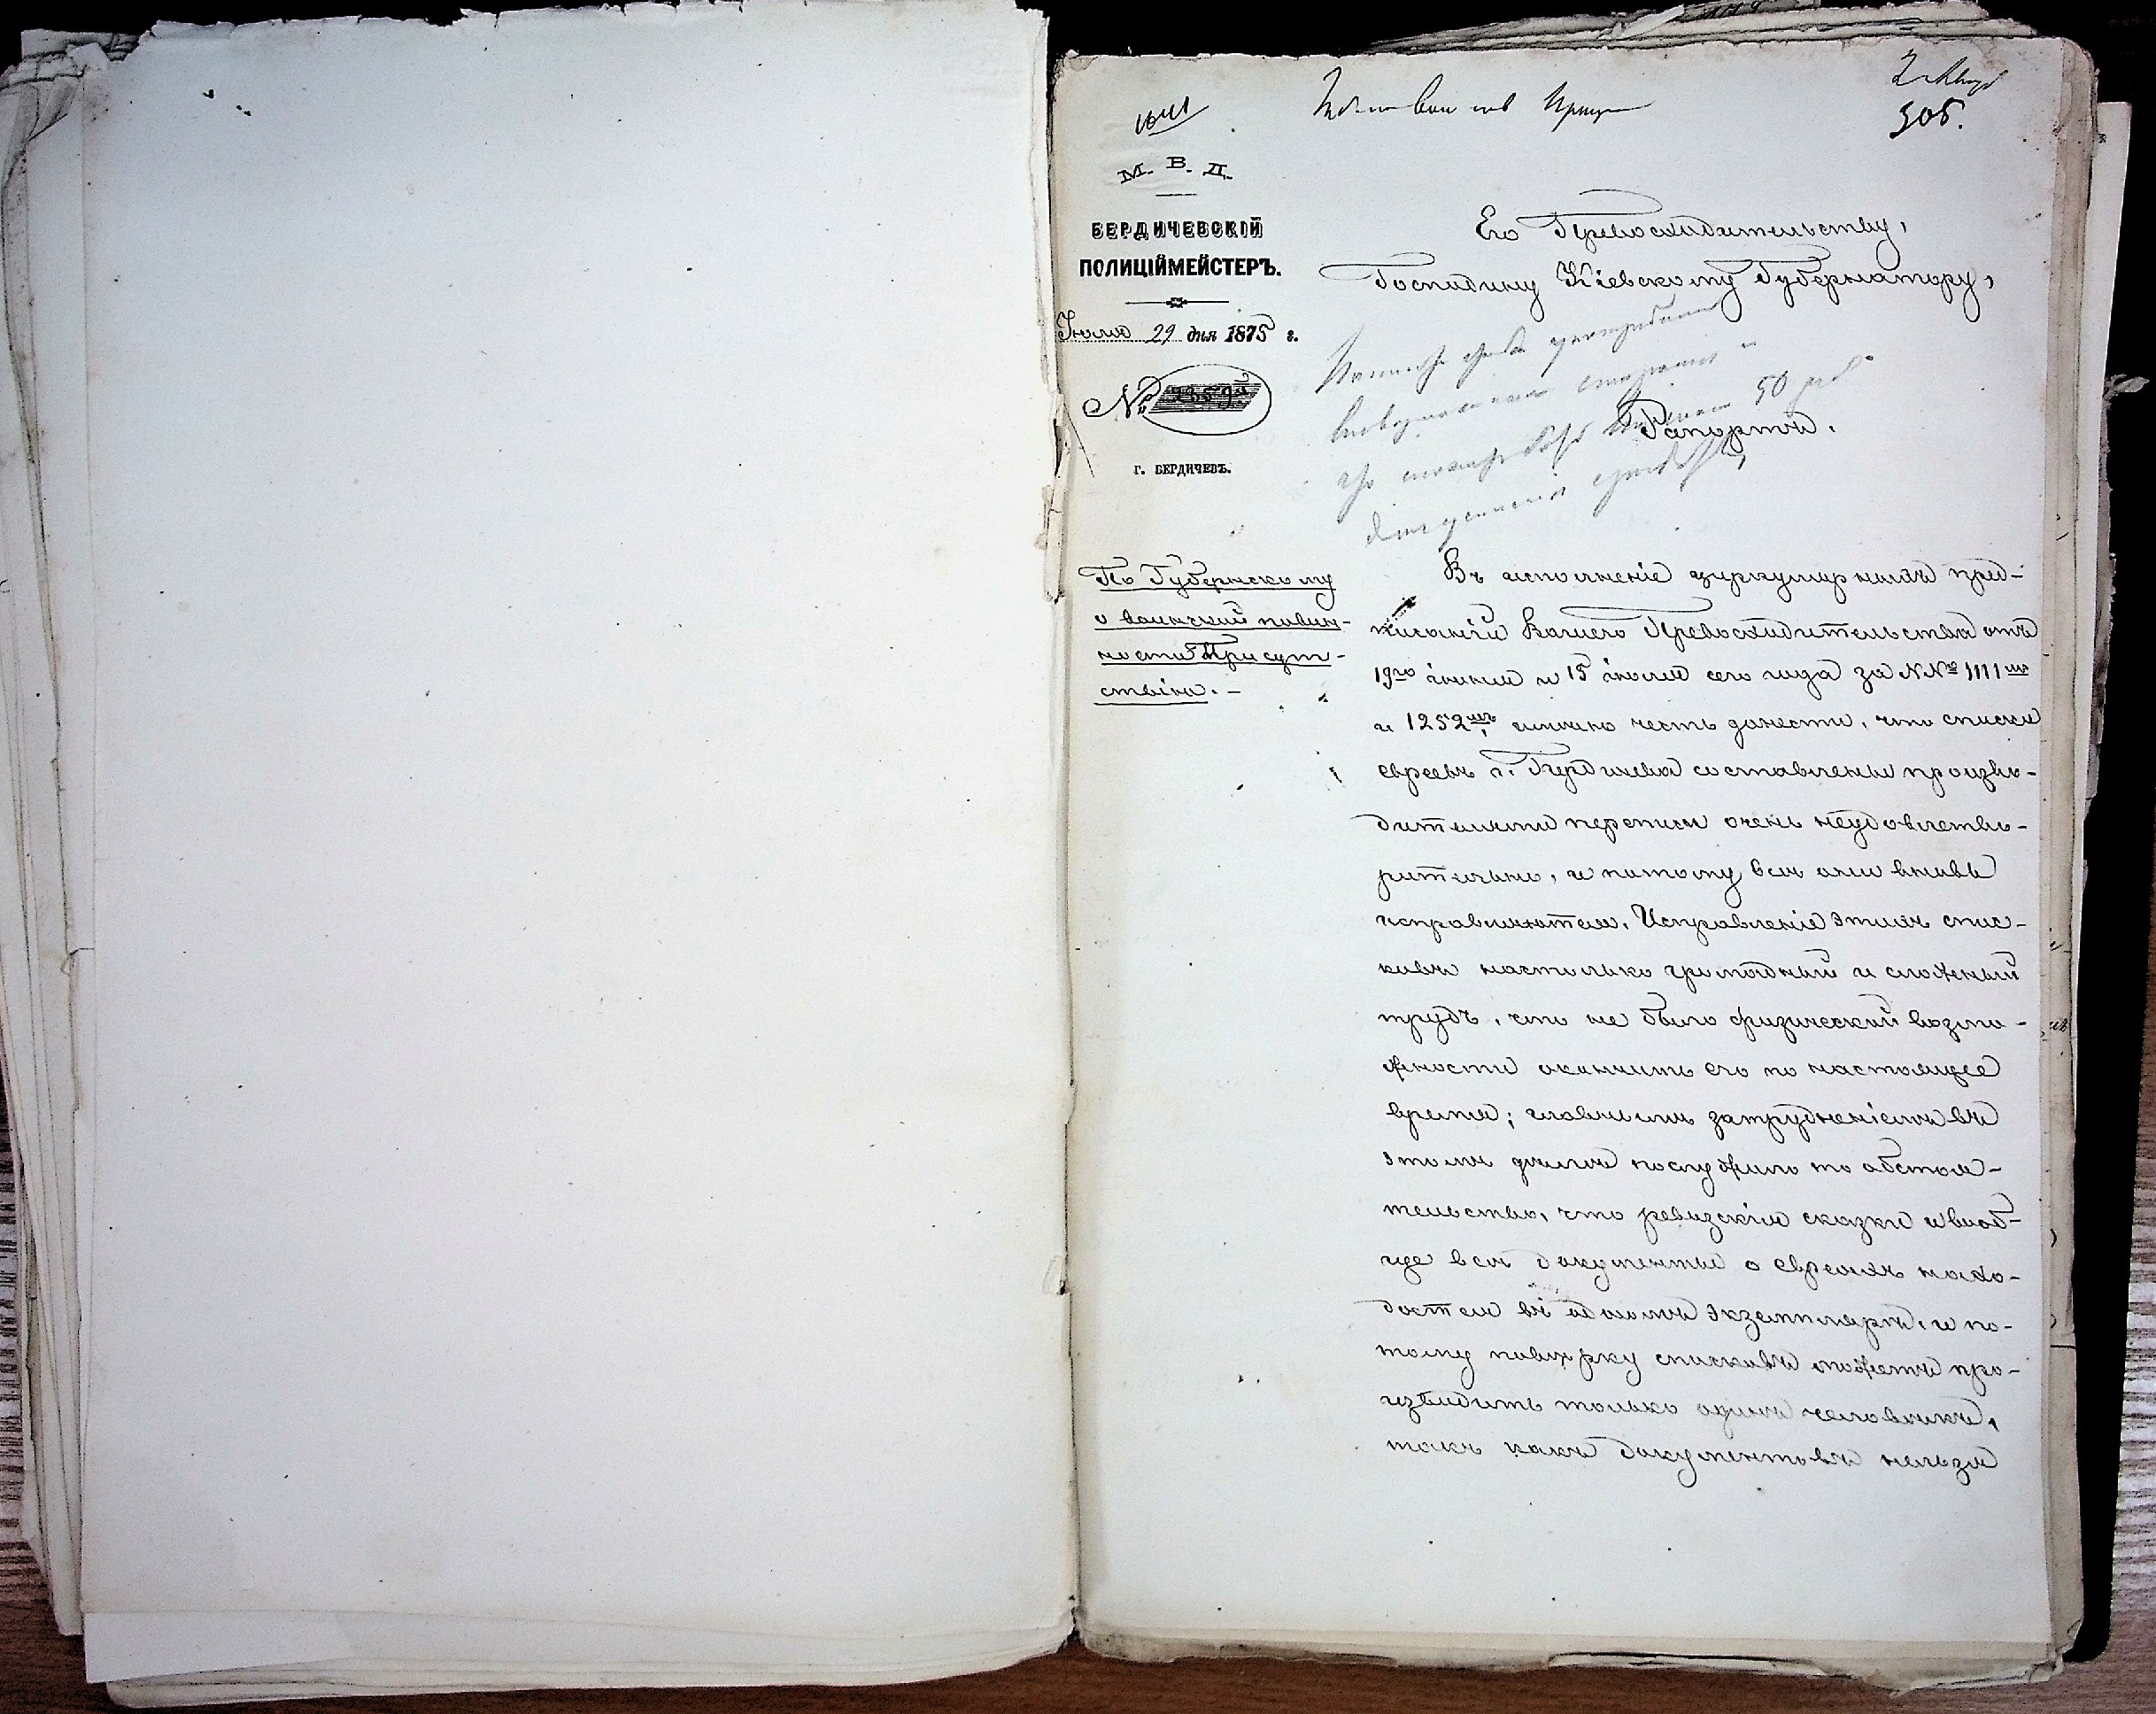 505.
М. В. Д.
БЕРДИЧЕВСКІЙ
ПОЛИЦІЙМЕЙСТЕРЪ.
Іюля 29 дня 1875 г.
№
г. БЕРДИЧЕВЪ.
По Губернскому
о воинской повин-
ности Присут-
ствію. –
Его Превосходительству,
Господину Кіевскому Губернатору,
Рапортъ.
Въ исполненіе циркулярныхъ пред-
писаній Вашего Превосходительства отъ
19го іюня и 15 іюля сего года за №№ 1111мъ
и 1252мъ, имѣю честь донести, что списки
евреевъ г. Бердичева составлены произво-
дителями переписи очень неудовлетво-
рительно, и потому всѣ они вновь
исправляются. Исправленіе этихъ спис-
ковъ настолько громадный и сложный
трудъ, что не было физической возмо-
жности окончить его по настоящее
время; главнымъ затрудненіемъ въ
этомъ дѣлѣ послужило то обстоя-
тельство, что ревизскія сказки и вооб-
ще всѣ документы о евреяхъ нахо-
дятся въ одномъ экземплярѣ, и по-
тому повѣрку списковъ можетъ про-
изводить только одинъ человѣкъ,
такъ какъ документовъ нельзя